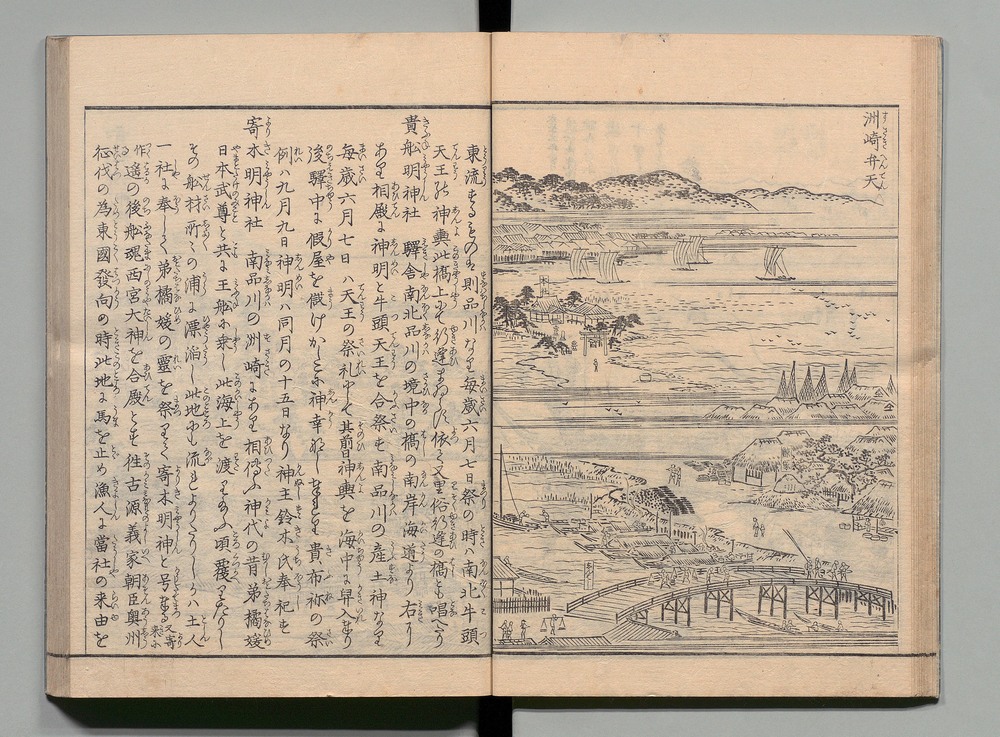 洲崎弁天
東流するもの名則品川なり毎歳六月七日祭の時ハ南北牛頭
天王の神輿此橋上にて行逢あり依て又里俗行逢の橋とも唱へり
貴船明神社 驛舎南北品川の境中の橋の南岸海道より右り
あり相殿に神明と牛頭天王を合祭す南品川の産土神なり
毎歳六月七日ハ天王の祭礼にして其前日神輿を海中に舁入せり
後驛中に假屋を儲けかしこに神幸なし奉る貴布祢の祭
例ハ九月九日神明ハ同月の十五日なり神主鈴木氏奉祀す
寄木明神社 南品川の洲崎にあり相傳ふ神代の昔弟橘媛
日本武尊と共に王船に乗し此海上を渡りたまふ頃覆りたりし
その船材所々の浦に漂泊し此地にも流れよりたりしかハ土人
一社に奉して弟橘媛の靈を祭りて寄木明神と号す又寄来に
作る遙の後船魂西宮大神を合殿とす往古源義家朝臣奥州
征伐の為東國發向の時此地に馬を止め漁人に當社の来由を